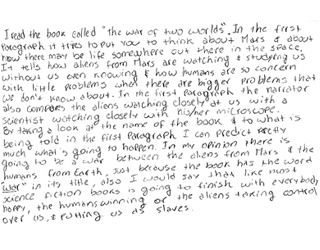 I read the book called "the war of two worlds". In the first
Paragraph it tries to put you to think about Mars & about
how there may be life somewhere out there in the space,
It tells how aliens from Mars are watching & studying us
without us even knowing & how humans are so concern
with little problems when there are bigger problems that
we don't know about. In the first Paragraph the narrator
also compares the aliens watching closely at us with a
scientist watching closely with his/her microscope.
By taking a look at the name of the book & to what is
being told in the first Paragraph I can predict pretty
much what is going to happen. In my opinion there is
going to be a war between the aliens from Mars & the
humans from Earth, Just because the book has the word
"War" in its title, also I would say that like most
science fiction books is going to finish with everybody
happy, the humans winning or the aliens taking control
over us, & putting us as slaves.